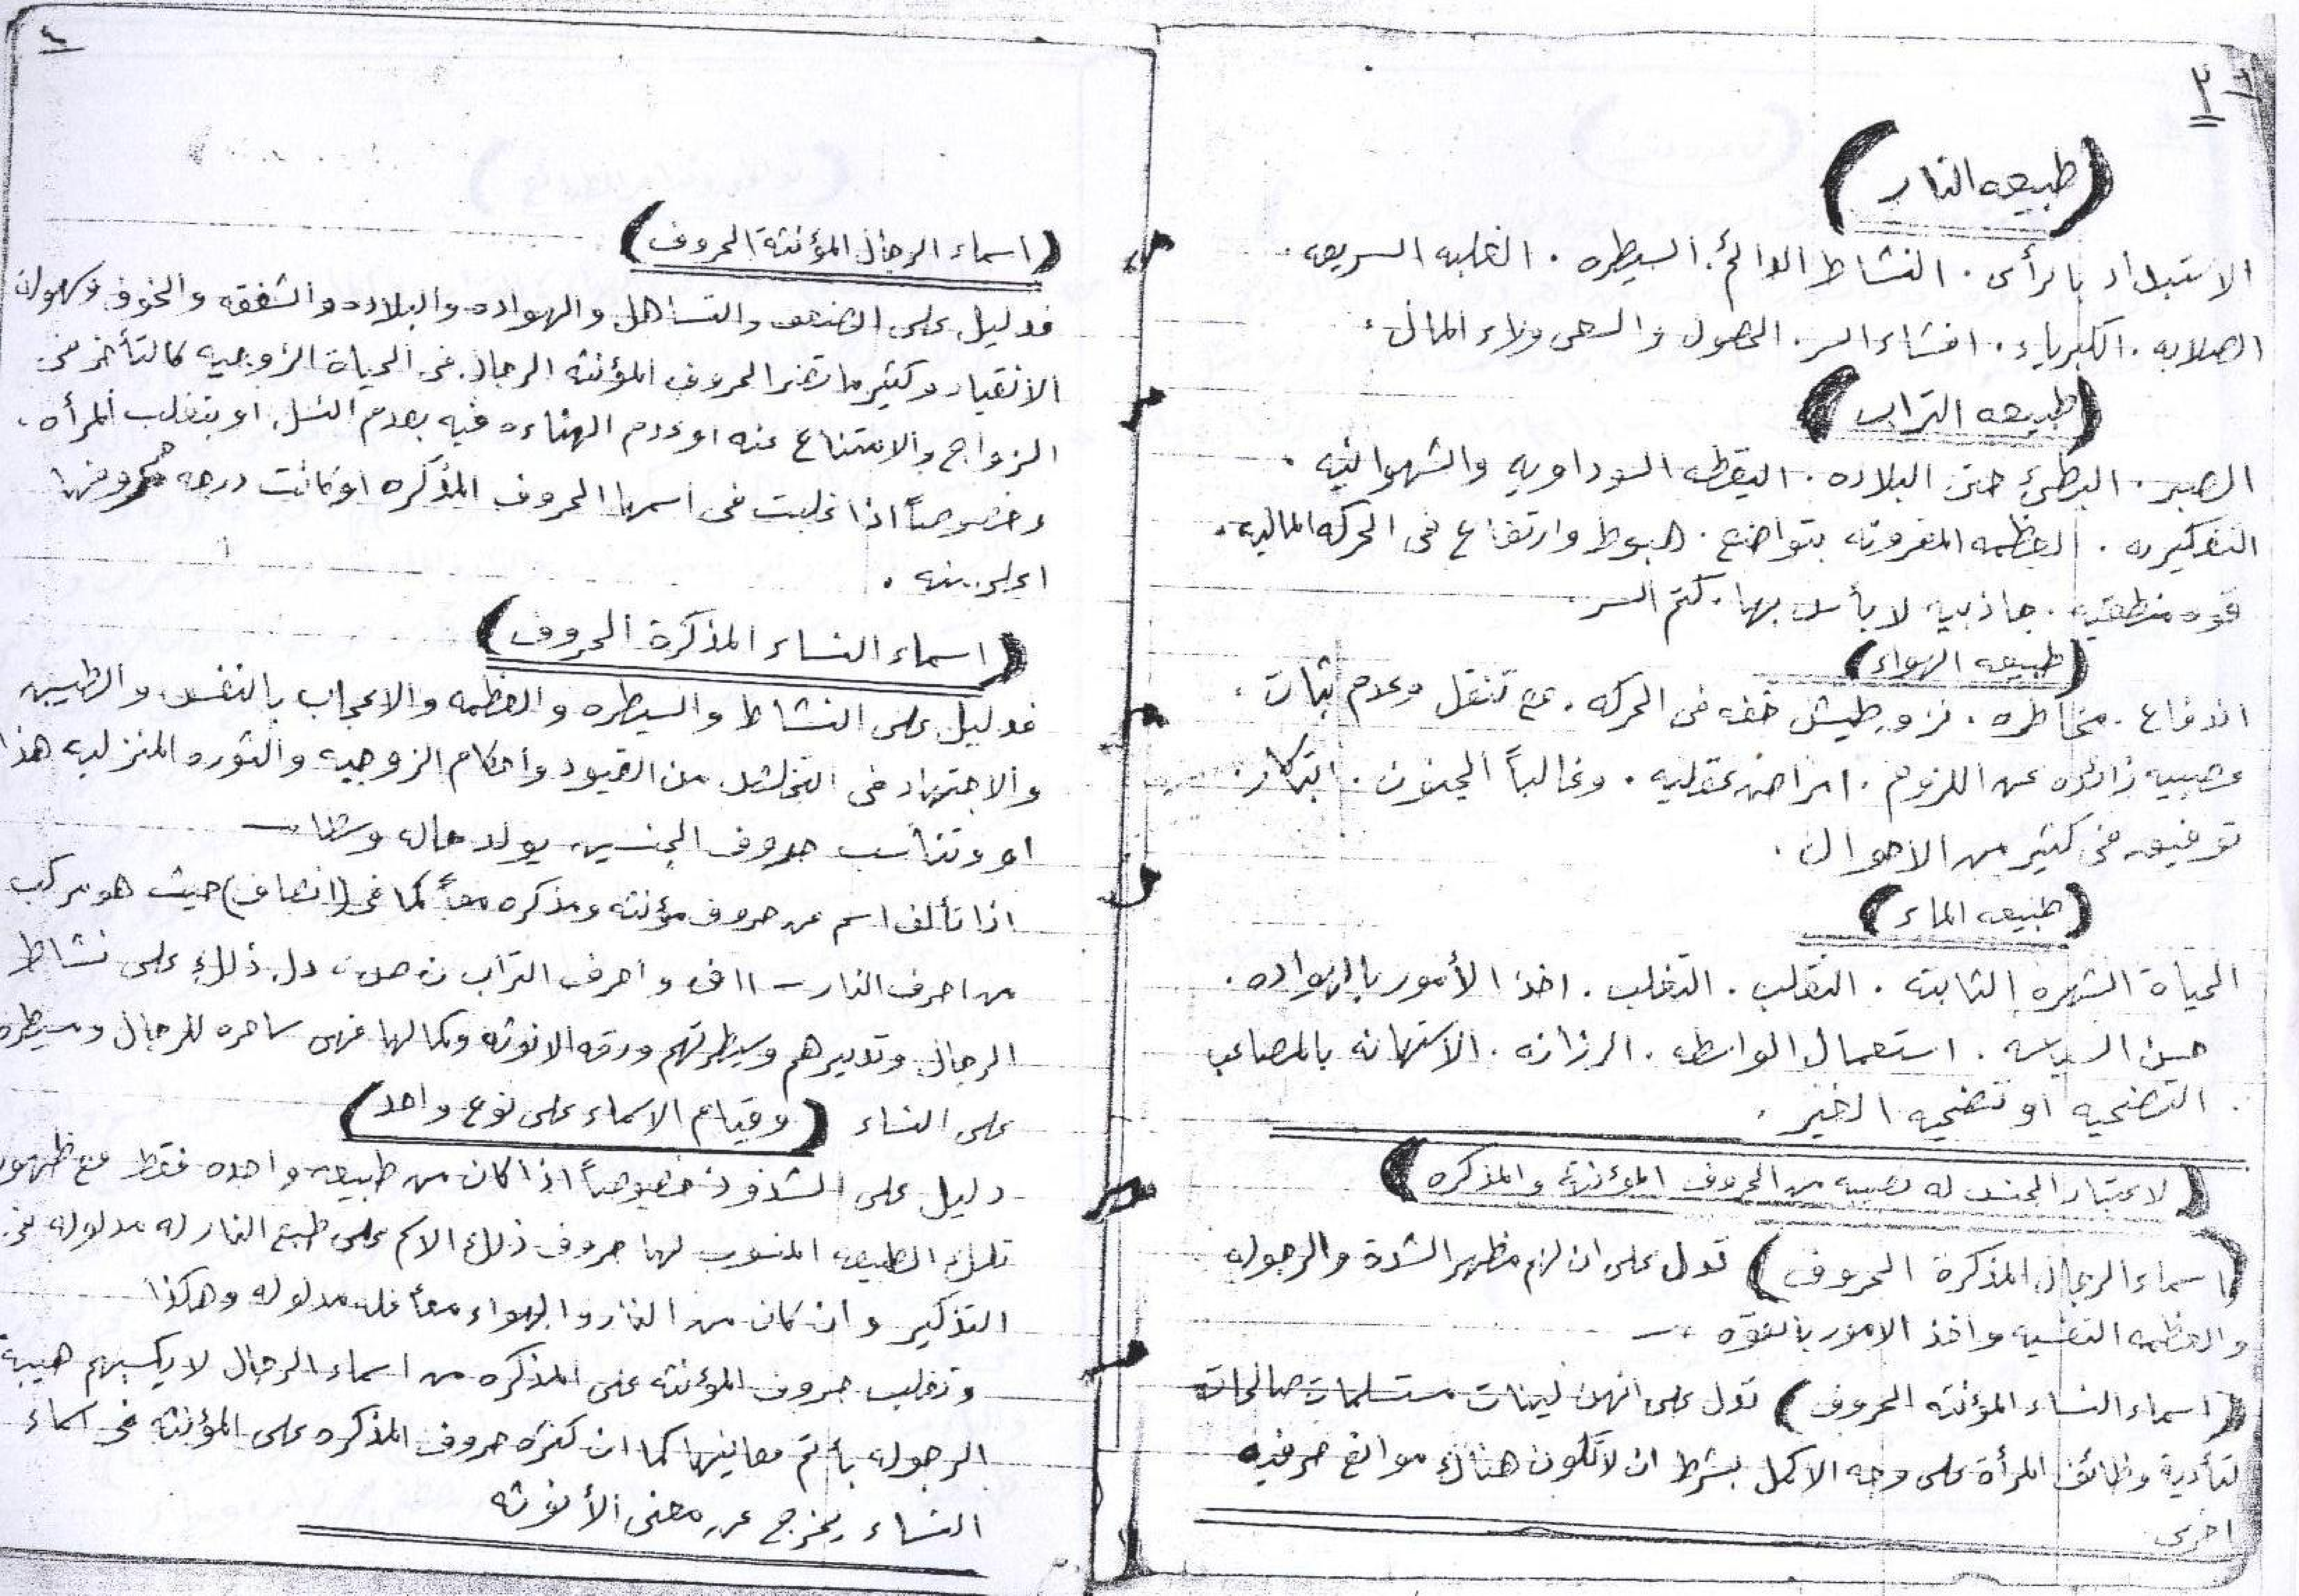 ٣
(طبيعه النار)
الاستبداد بالرأى . النشاط الدائم . السيطره . الغلبه السريعه .
الصلابه . الكبرياء . افشاء السر . الحصول والسعى وراء المال .
(طبيعه التراب)
الصبر . البطئ حتى البلاده . اليقظه السوداويه والشهوانيه .
التفكيريه . العظمه المقرونه بتواضع . هبوط وارتفاع فى الحركه الماليه .
قوه منطقيه . جاذبيه لا بأس بها . كتم السر .
(طبيعه الهواء)
اندفاع . مخاطره . نزو طيش خفه فى الحركه . مع تنقل وعدم ثبات .
عصبيه زائده عن اللزوم . امراض عقليه . وغالباً الجنون . ابتكار .
توفيق فى كثير من الاحوال .
(طبيعه الماء)
الحياة الشهره الثابته . التقلب . التغلب . اخذ الأمور بالهواده .
حسن السياسه . استعمال الواسطه . الرزانه . الاستهانه بالمصاعب
. التضحيه او تضحيه الغير .
(لاعتبار الجنس له نصيبه من الحروف المؤنثة والمذكره)
(اسماء الرجال المذكرة الحروف) تدل على ان لهم مظهر الشدة والرجوله
والعظمه النفسيه واخذ الامور بالقوه .—
(اسماء النساء المؤنثه الحروف) تدل على انهن لينات مستسلمات صالحات
لتأدية وظائف المرأة على وجه الاكمل بشرط ان لا تكون هناك موانع حرفيه
اخرى
٤
(اسماء الرجال المؤنثة الحروف)
فدليل على الضعف والتساهل والهواده والبلاده والشفقه والخوف وسهوله
الانقياد وكثير ما تضر الحروف المؤنثه الرجال فى الحياة الزوجيه كالتأخر فى
الزواج والامتناع عنه او عدم الهناءه فيه بعدم النسل او بتغلب المرأه .
وخصوصاً اذا غلبت فى اسمها الحروف المذكره او كانت درجه حروفها
اعلى منه .
(اسماء النساء المذكرة الحروف)
فدليل على النشاط والسيطره والعظمه والاعجاب بالنفس والطيش
والاجتهاد فى التخلص من القيود واحكام الزوجيه والثوره المنزليه هذا
او وتناسب حروف الجنسين يولد حاله وسطا —
اذا تألف اسم من حروف مؤنثه ومذكره معاً كما فى (انصاف) حيث هو مركب
من احرف النار — ا ا ف و احرف التراب ن ص ، دل ذلك على نشاط
الرجال وتدبيرهم وسيطرتهم ورقه الانوثه وكمالها فهى ساحره للرجال ومسيطره
على النساء (وقيام الاسماء على نوع واحد)
دليل على الشذوذ خصوصاً اذا كان من طبيعه واحده فقط مع ظهور
تلك الطبيعه المنسوب لها حروف ذلك الاسم على طبع النار له مدلوله فى
التذكير وان كان من النار والهواء معاً فله مدلوله وهكذا
وتغلب حروف المؤنثه على المذكره من اسماء الرجال لا يكسبهم هيبة
الرجوله بأتم معانيها كما ان كثره حروف المذكره على المؤنثه فى اسماء
النساء يخرج عن معنى الأنوثه